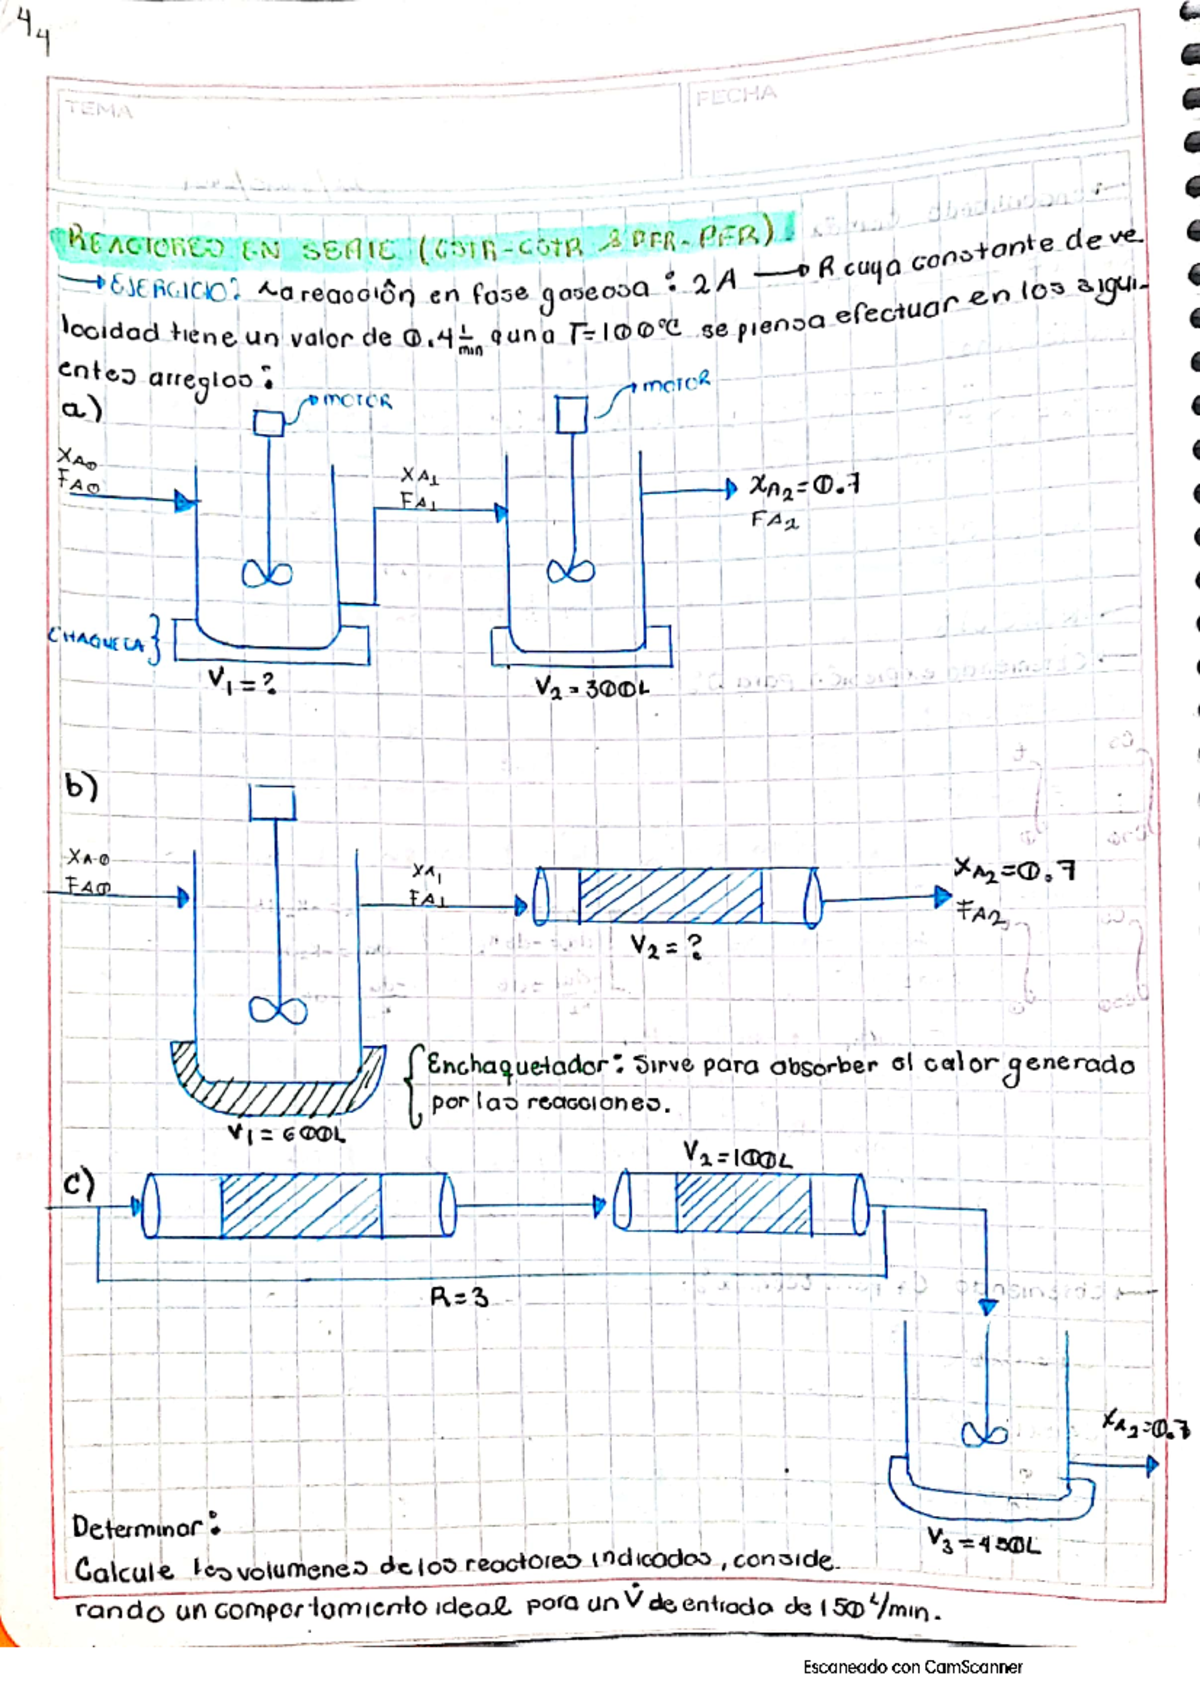 44
TEMA
FECHA
REACTORES EN SERIE (CSTR-CSTR & PFR-PFR).
→ EJERCICIO: La reacción en fase gaseosa: 2A → R cuya constante de ve
locidad tiene un valor de 0.4 1/min a una T=100°C se piensa efectuar en los sigui-
entes arreglos:
a)
MOTOR
MOTOR
XA0
FA0
XA1
FA1
XA2=0.7
FA2
CHAQUETA
V1=?
V2=300L
b)
XA0
FA0
XA1
FA1
XA2=0.7
FA2
V2=?
Enchaquetador: Sirve para absorber el calor generado
por las reacciones.
V1=600L
V2=100L
c)
R=3
XA2=0.7
V3=450L
Determinar:
Calcule los volumenes de los reactores indicados, conside
rando un comportamiento ideal para un V̇ de entrada de 150 L/min.
Escaneado con CamScanner